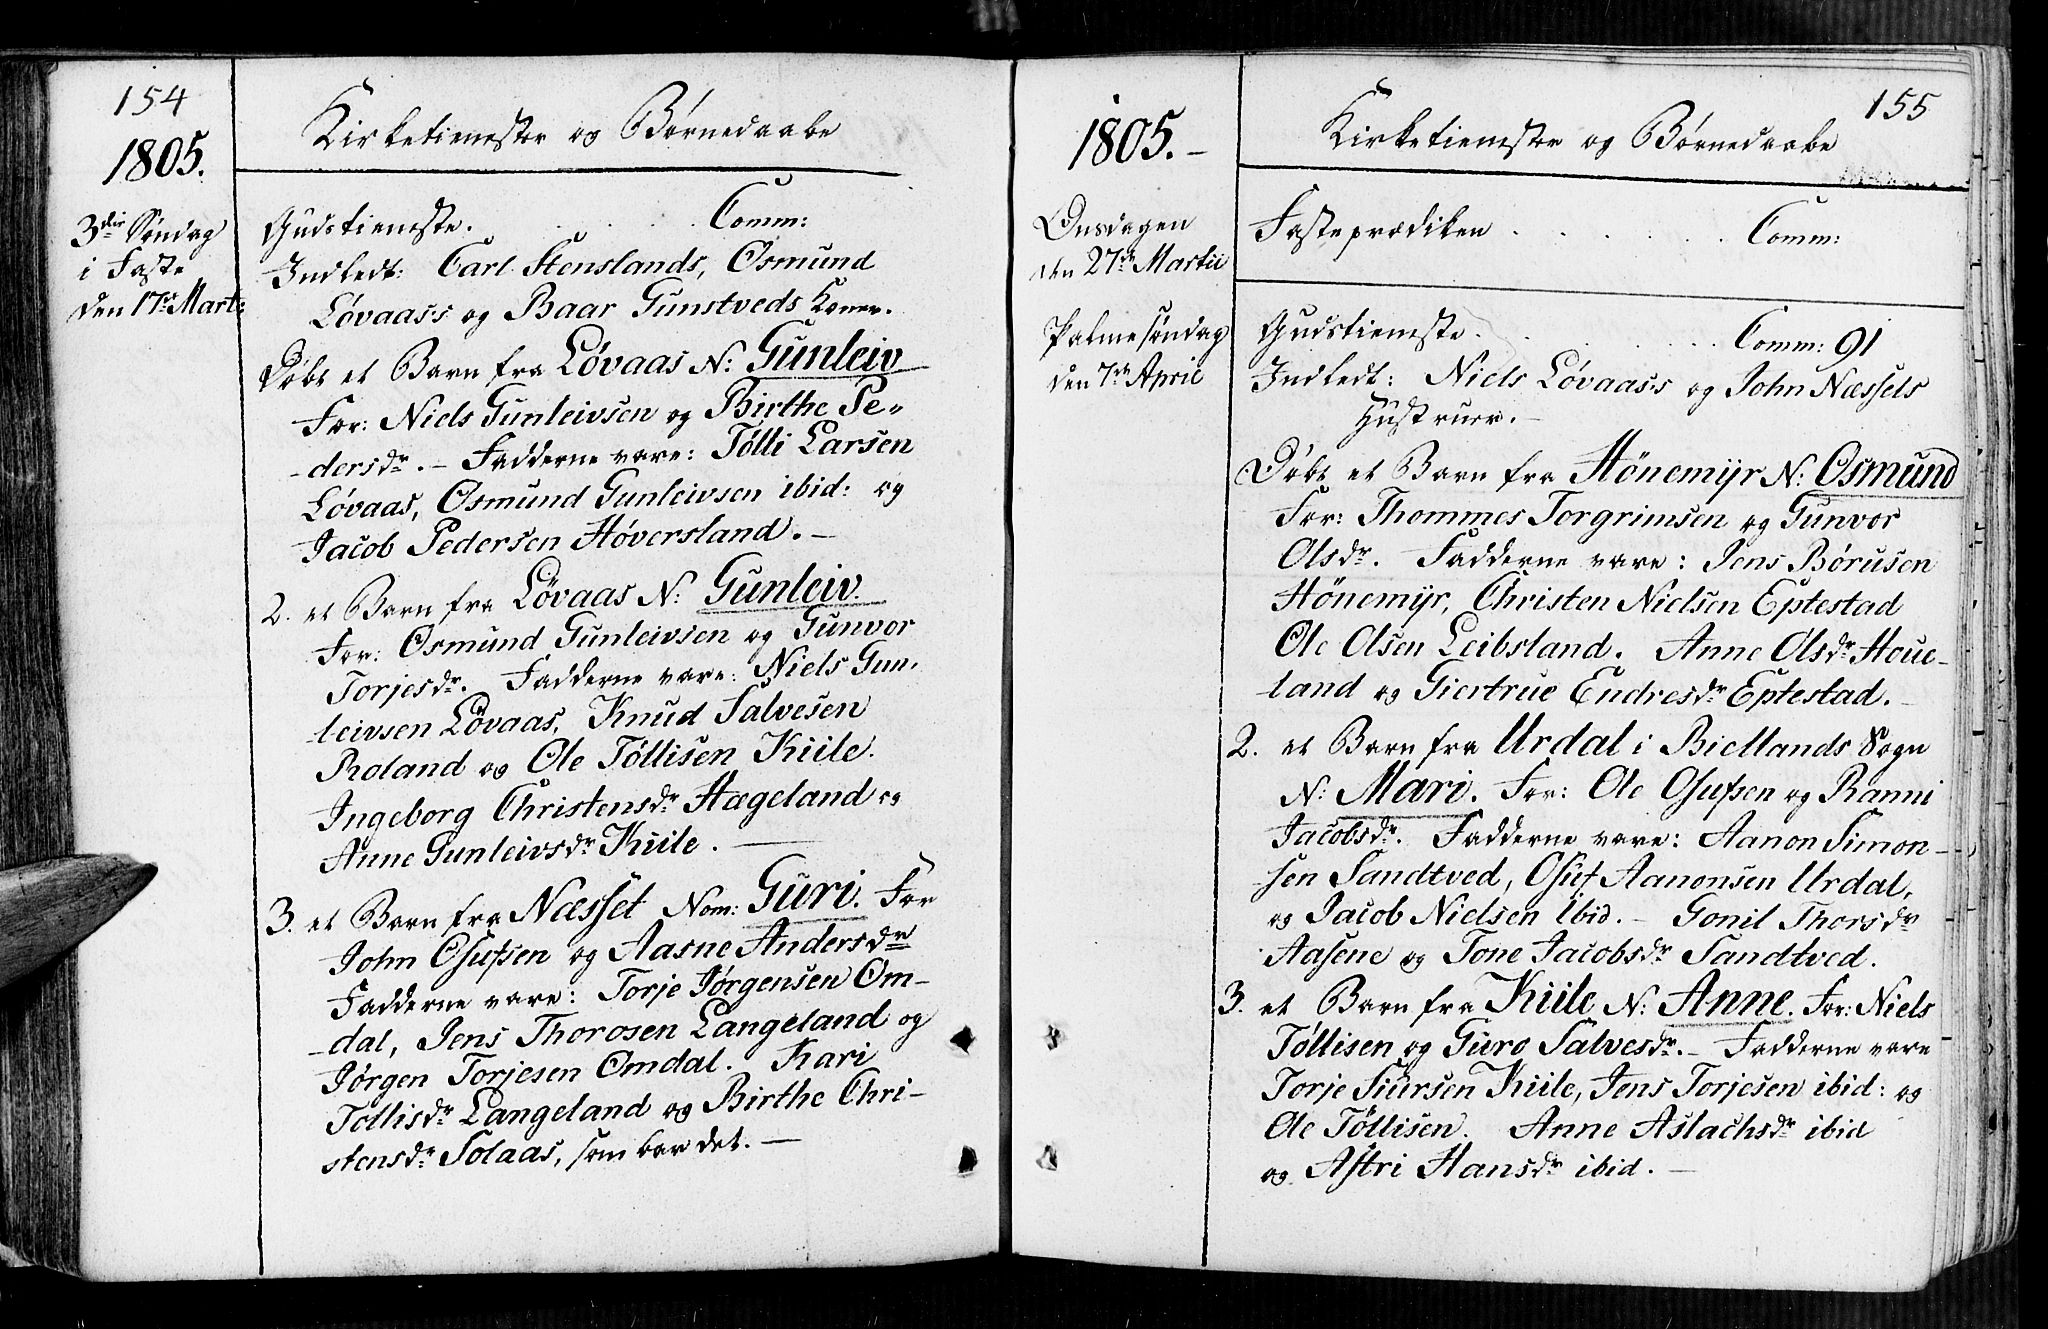 154
1805.
Kirketienester og Børnedaabe
3die Søndag
i Faste
den 17de Marti:
Gudstieneste. . . . . . Comm:
Indledt: Carl Stenslands, Osmund
Løvaass og Baar Gunstveds Koner.
Døbt et Barn fra Løvaas N: Gunleiv
For: Niels Gunleivsen og Birthe Pe-
dersdr. – Fadderne vare: Tølli Larsen
Løvaas, Osmund Gunleivsen ibid: og
Jacob Pedersen Høversland. –
2. et Barn fra Løvaas N: Gunleiv.
For: Osmund Gunleivsen og Gunvor
Torjesdr. Fadderne vare: Niels Gun-
leivsen Løvaas, Knud Salvesen
Roland og Ole Tøllisen Kiile.
Ingeborg Christensdr Hægeland og
Anne Gunleivsdr Kiile. —
3. et Barn fra Næsset Nom: Guri. For
John Osufsen og Aasne Andersdr
Fadderne vare: Torje Jørgensen Om-
dal, Jens Thorosen Langeland og
Jørgen Torjesen Omdal. Kari
Tollisdr Langeland og Birthe Chri-
stensdr Solaas, som bar det. —
155
1805. –
Kirketienester og Børnedaabe
Onsdagen
den 27de Martii
Fasteprædiken . . . . . . Comm:
Palmesøndag
den 7de April
Gudstieneste . . . . . . Comm: 91
Indledt: Niels Løvaass og John Næssets
Hustruer. –
Døbt et Barn fra Hönemijr N: Osmund
For: Thommes Torgrimsen og Gunvor
Olsdr. Fadderne vare: Jens Børusen
Hönemijr, Christen Nielsen Eptestad
Ole Olsen Leibsland. Anne Olsdr Houe-
land og Giertrue Endresdr Eptestad. –
2. et Barn fra Urdal i Biellands Sogn
N: Mari. For: Ole Osufsen og Ranni
Jacobsdr. Fadderne vare: Aanon Simon-
sen Sandtved, Osuf Aanonsen Urdal,
og Jacob Nielsen Ibid. – Gonil Thorsdr
Aasene og Tone Jacobsdr Sandtved.
3. et Barn fra Kiile N: Anne. For: Niels
Tøllisen og Guro Salvesdr. – Fadderne vare
Torje Siursen Kiile, Jens Torjesen ibid: og
Ole Tøllisen. Anne Aslachsdr ibid
og Astri Hansdr ibid. –